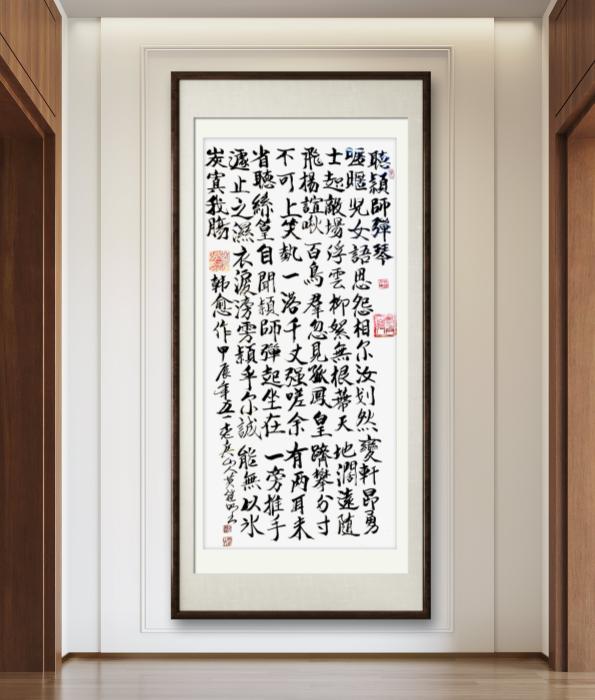 聽頴師彈琴
暱暱兒女語恩怨相尔汝划然變軒昂勇
士赴敵場浮雲柳絮無根蒂天地濶遠隨
飛揚諠啾百鳥羣忽見孤鳳皇躋攀分寸
不可上失勢一落千丈强嗟余有兩耳未
省聽絲篁自聞頴師彈起坐在一旁推手
遽止之濕衣淚滂雱頴乎尔誠能無以冰
炭寘我腸
韩愈作甲辰年五一老兵山人黄